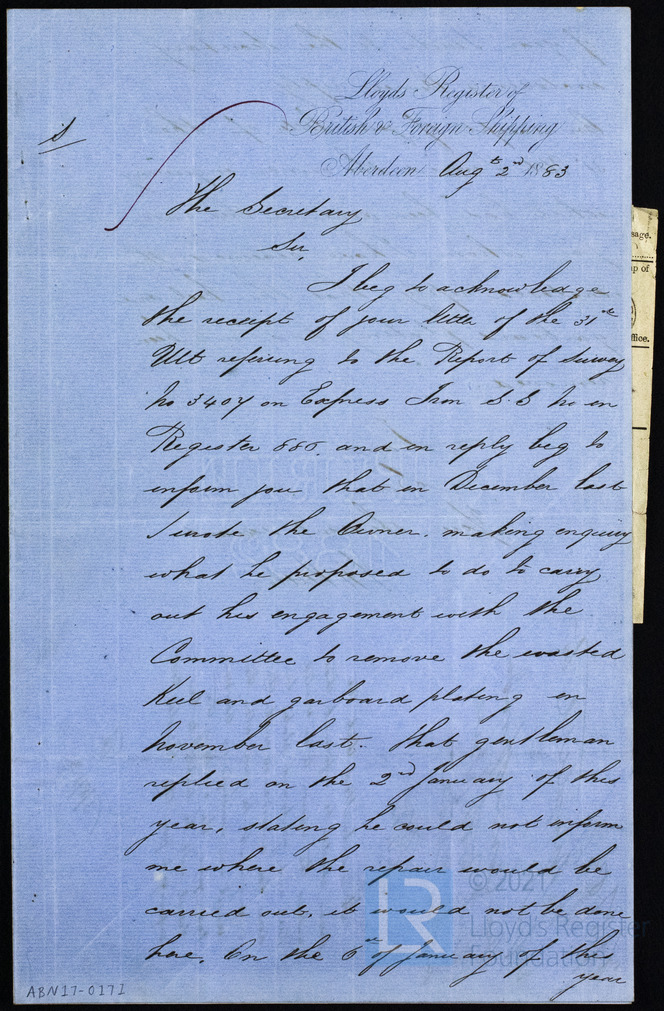 Lloyds Register of
British & Foreign Shipping
Aberdeen Augt 2nd 1883
The Secretary
Sir,
I beg to acknowledge
the receipt of your letter of the 31st
Ult refering to the Report of Survey
No 3407 on Express Iron S.S No in
Register 886. and in reply beg to
inform you that in December last
I wrote the Owner. making enquiry
what he proposed to do to carry
out his engagement with the
Committee to remove the wasted
Keel and garboard plating in
November last. that gentleman
replied on the 2nd January of this
year, stating he could not inform
me where the repair would be
carried out, it would not be done
here. On the 6th of January of this
year
ABN17-0171
sage.
p of
ffice.
LR
© 2021
Lloyd's Register
Foundation